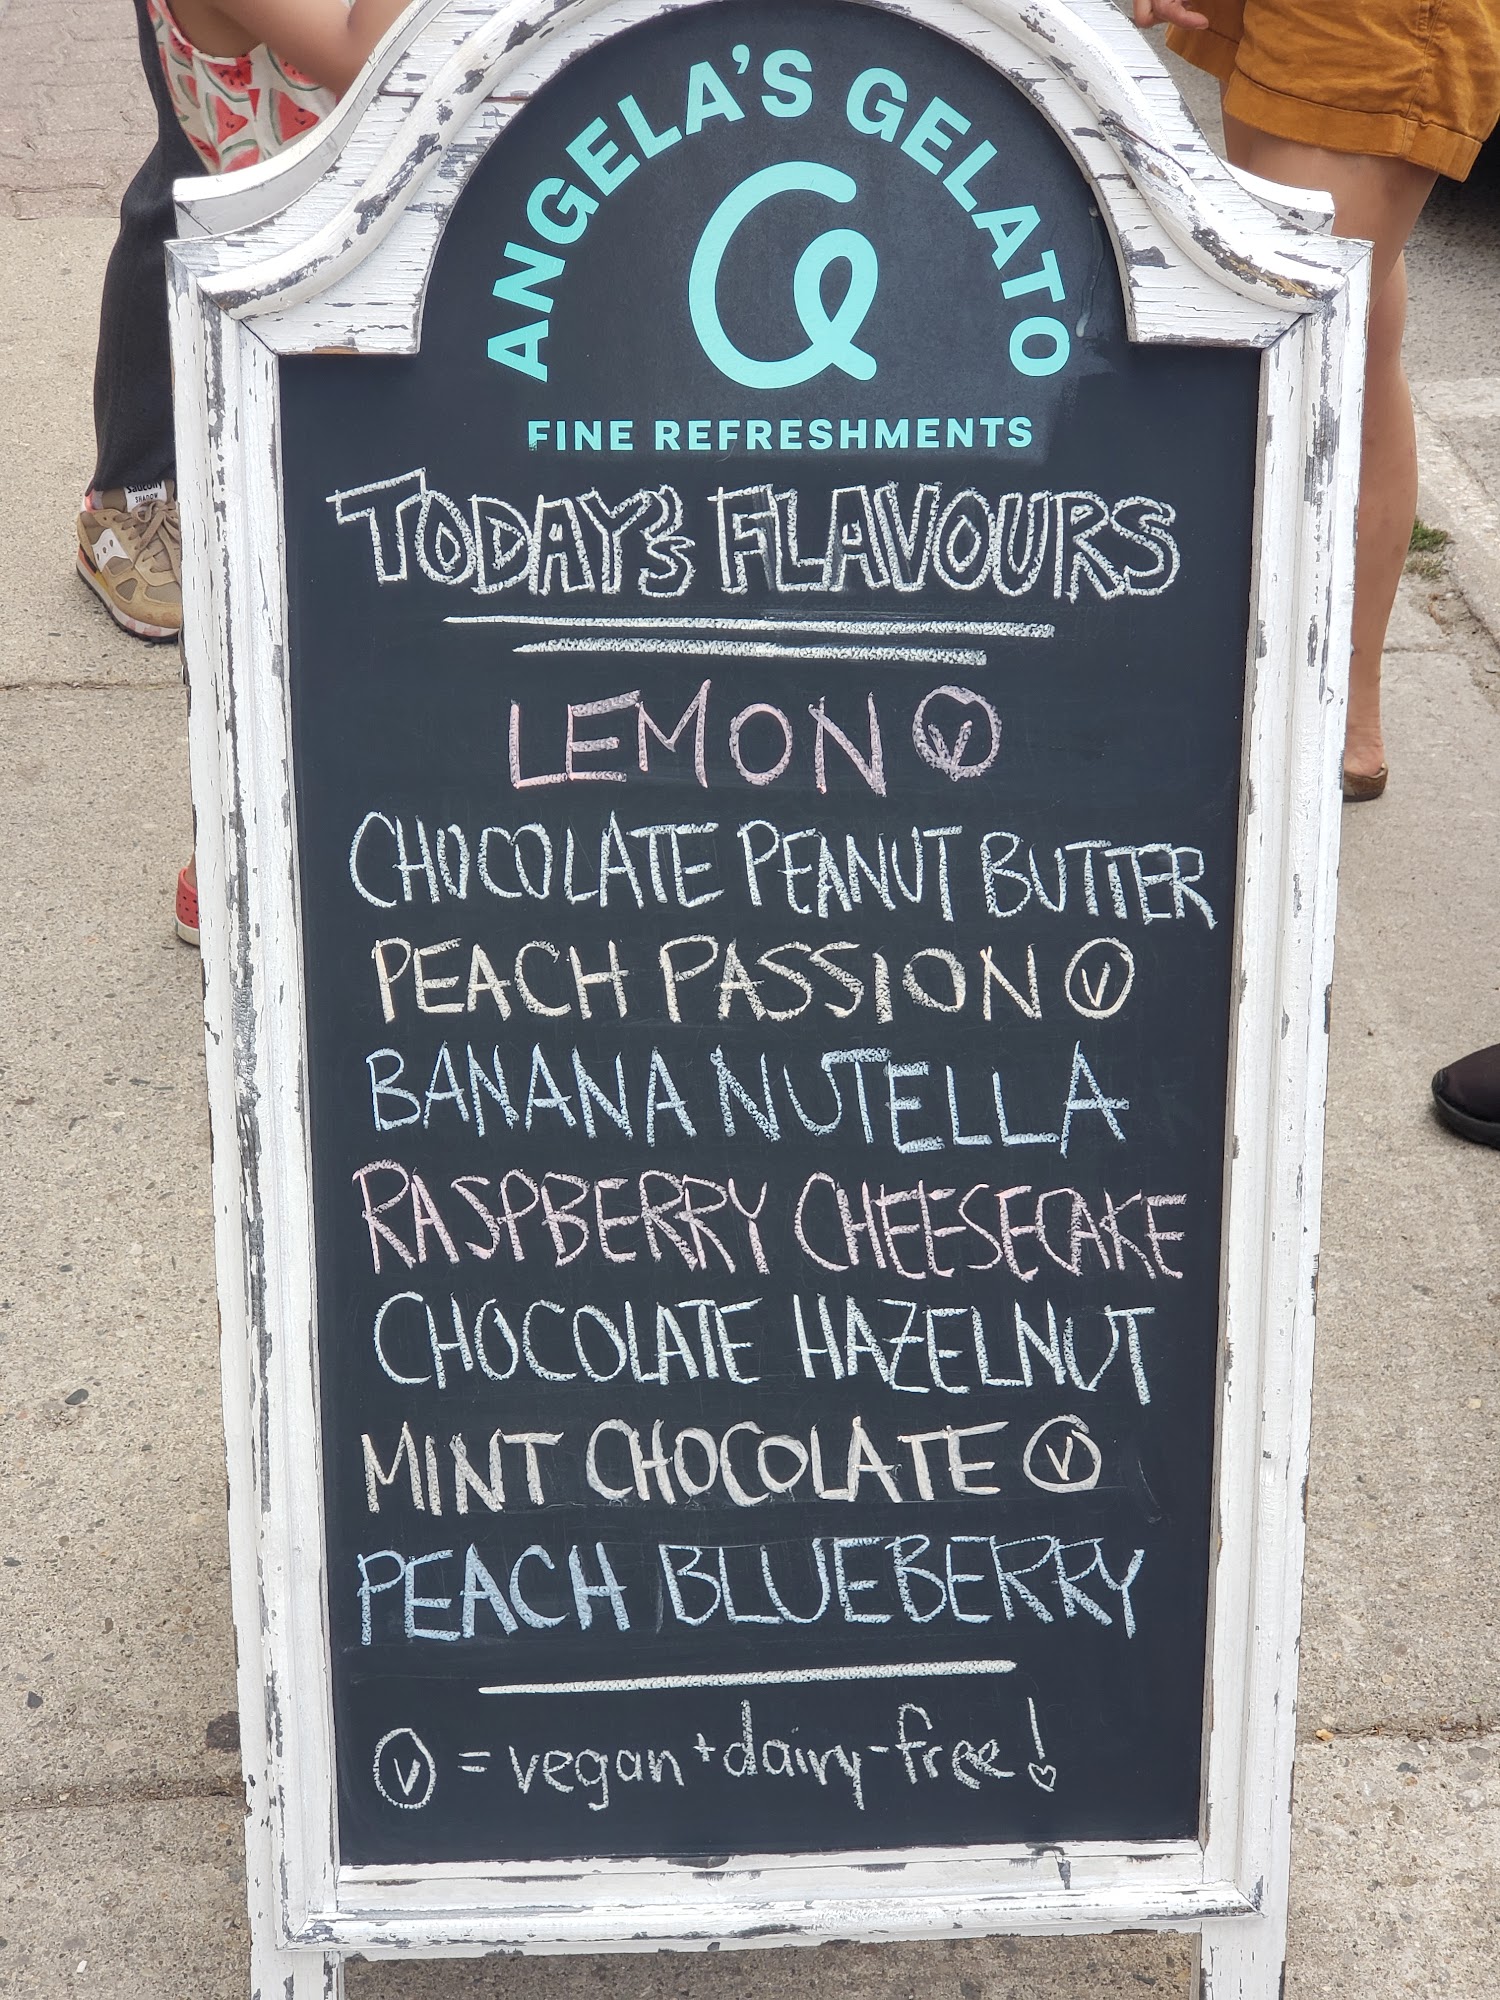 ANGELA'S GELATO
FINE REFRESHMENTS
TODAY'S FLAVOURS
LEMON Ⓥ
CHOCOLATE PEANUT BUTTER
PEACH PASSION Ⓥ
BANANA NUTELLA
RASPBERRY CHEESECAKE
CHOCOLATE HAZELNUT
MINT CHOCOLATE Ⓥ
PEACH BLUEBERRY
Ⓥ = vegan + dairy-free!
saucony
SHADOW